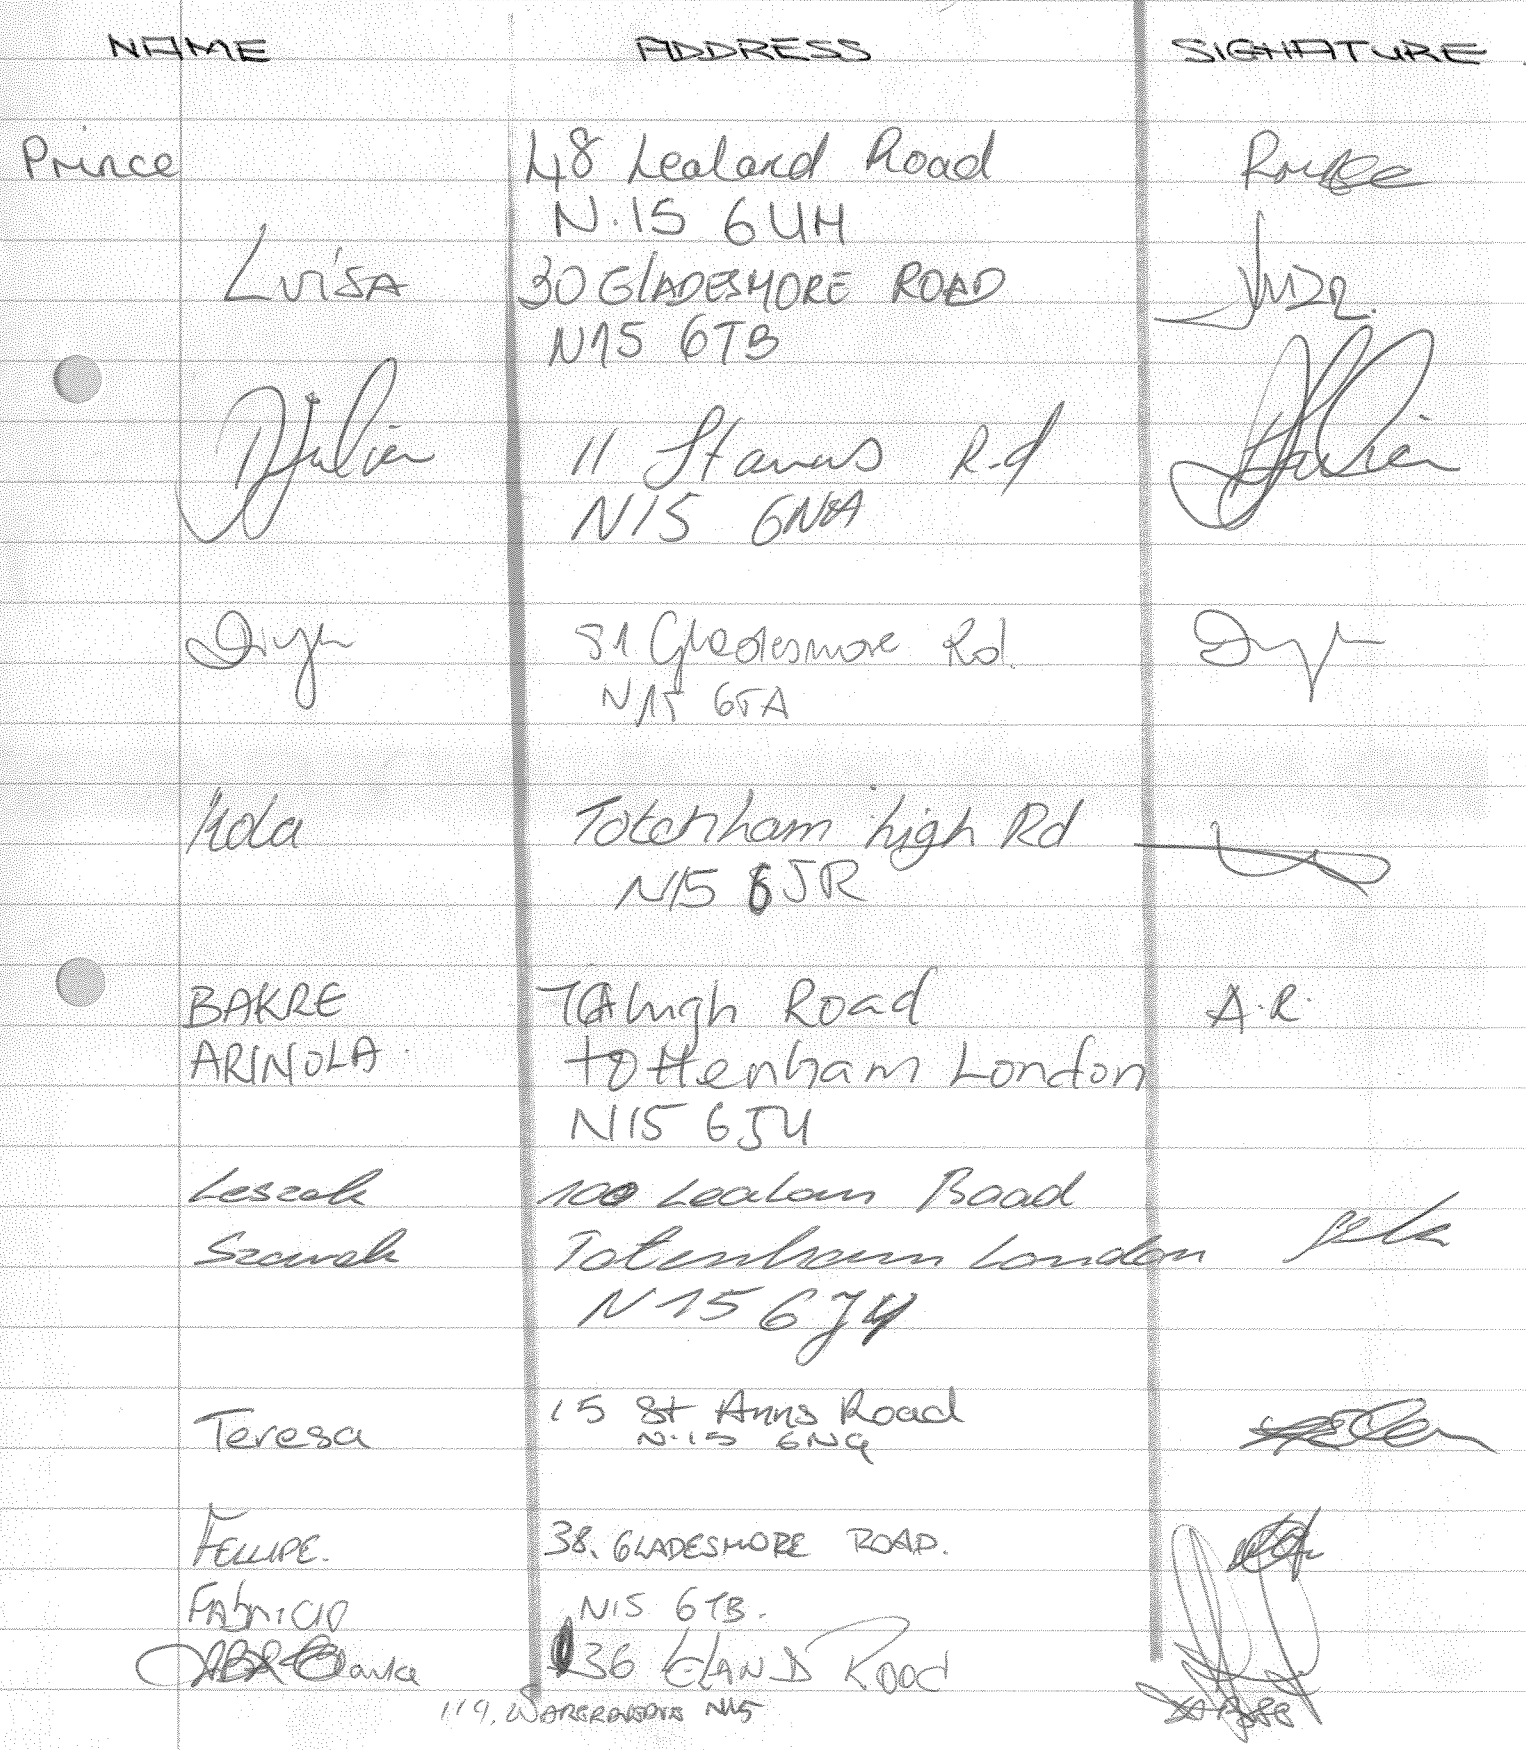 NAME ADDRESS SIGNATURE
Prince 48 Lealand Road
N.15 6UH
LUISA 30 GLADESMORE ROAD
N15 6TB
Julien 11 Stanns Rd
N15 6NA
81 Gladesmore Rd.
N15 6TA
Kola Totenham high Rd
N15 6JR
BAKRE high Road A.R.
ARINOLA. tottenham London
N15 6JU
Leszek 100 Lealam Road
Totenham London
N15 6J4
Teresa 15 St Anns Road
N.15 6NQ
FELLIPE. 38, GLADESMORE ROAD.
FAbriciO N15 6TB.
36 Road
119, N15